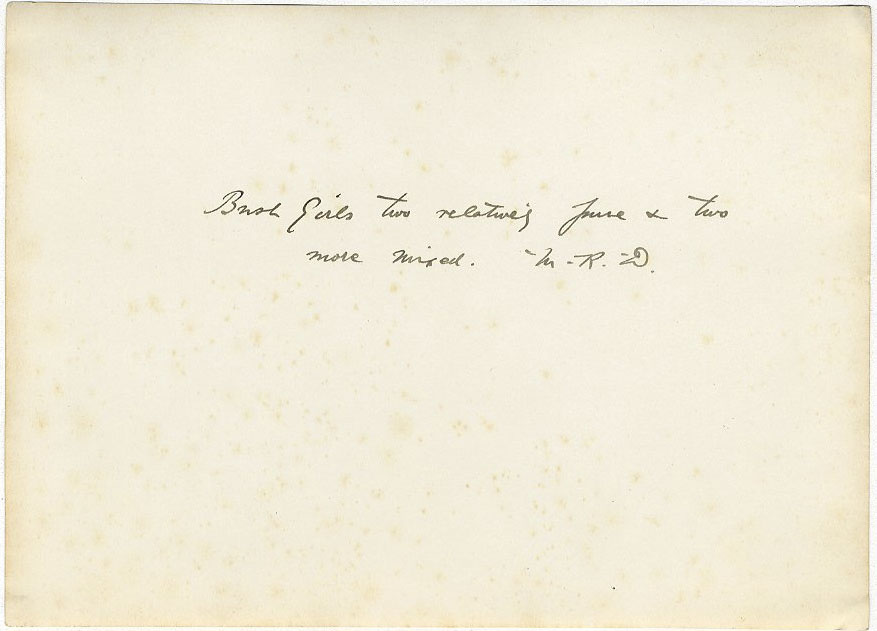 Bush Girls two relatively pure & two
more mixed. M-R.-D.